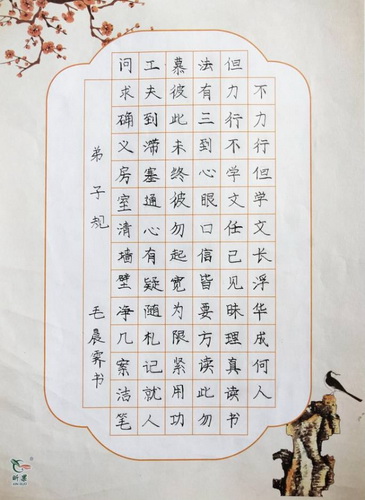 不力行但学文长浮华成何人
但力行不学文任己见昧理真读书
法有三到心眼口信皆要方读此勿
慕彼此未终彼勿起宽为限紧用功
工夫到滞塞通心有疑随札记就人
问求确义房室清墙壁净几案洁笔
弟子规
毛晨霁书